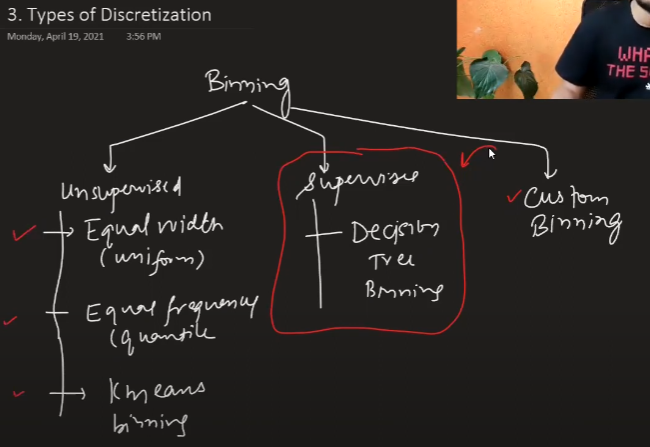 3. Types of Discretization
Monday, April 19, 2021 3:56 PM
WHA
THE S
Binning
Unsupervised
Equal width
(uniform)
Equal frequency
(quantile
Kmeans
binning
Supervise
Decision
Tree
Binning
Custom
Binning